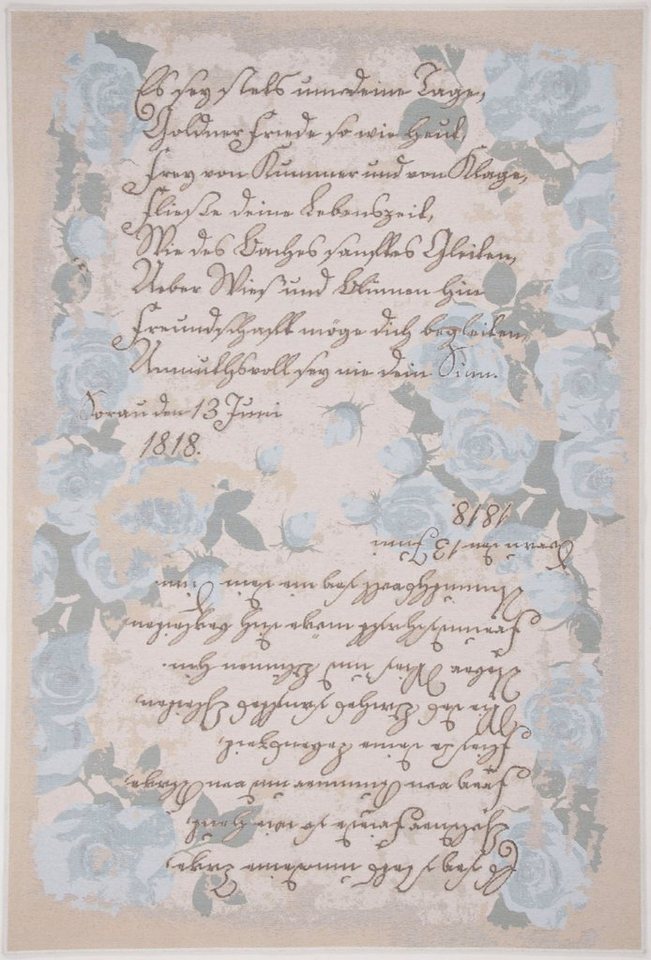 Es sey stets um deine Tage,
Goldner Friede so wie heut,
Frey von Kummer und von Klage,
Fließe deine Lebenszeit,
Wie des Baches sanftes Gleiten,
Ueber Wies und Blumen hin
Freundschafft möge dich begleiten,
Anmuthsvoll sey nie dein Sinn.
Sorau den 13 Juni
1818.
1818.
Sorau den 13 Juni
Anmuthsvoll sey nie dein Sinn.
Freundschafft möge dich begleiten
Ueber Wies und Blumen hin.
Wie des Baches sanftes Gleiten
Fließe deine Lebenszeit,
Frey von Kummer und von Klage
Goldner Friede so wie heut,
Es sey stets um deine Tage,